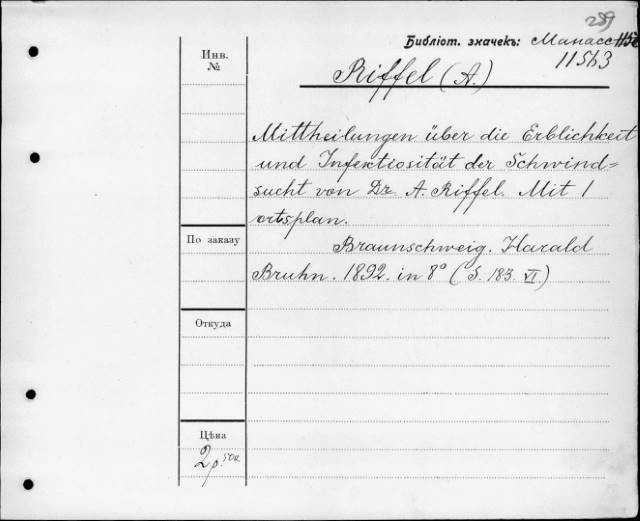 259
Библіот. значекъ: Манасс
11563
Инв.
№
Riffel (A.)
Mittheilungen über die Erblichkeit
und Infektiosität der Schwind=
sucht von Dr. A. Riffel. Mit 1
ortsplan.
По заказу
Braunschweig. Harald
Bruhn. 1892. in 8° (S. 183. VI.)
Откуда
Цѣна
2 р. 50к